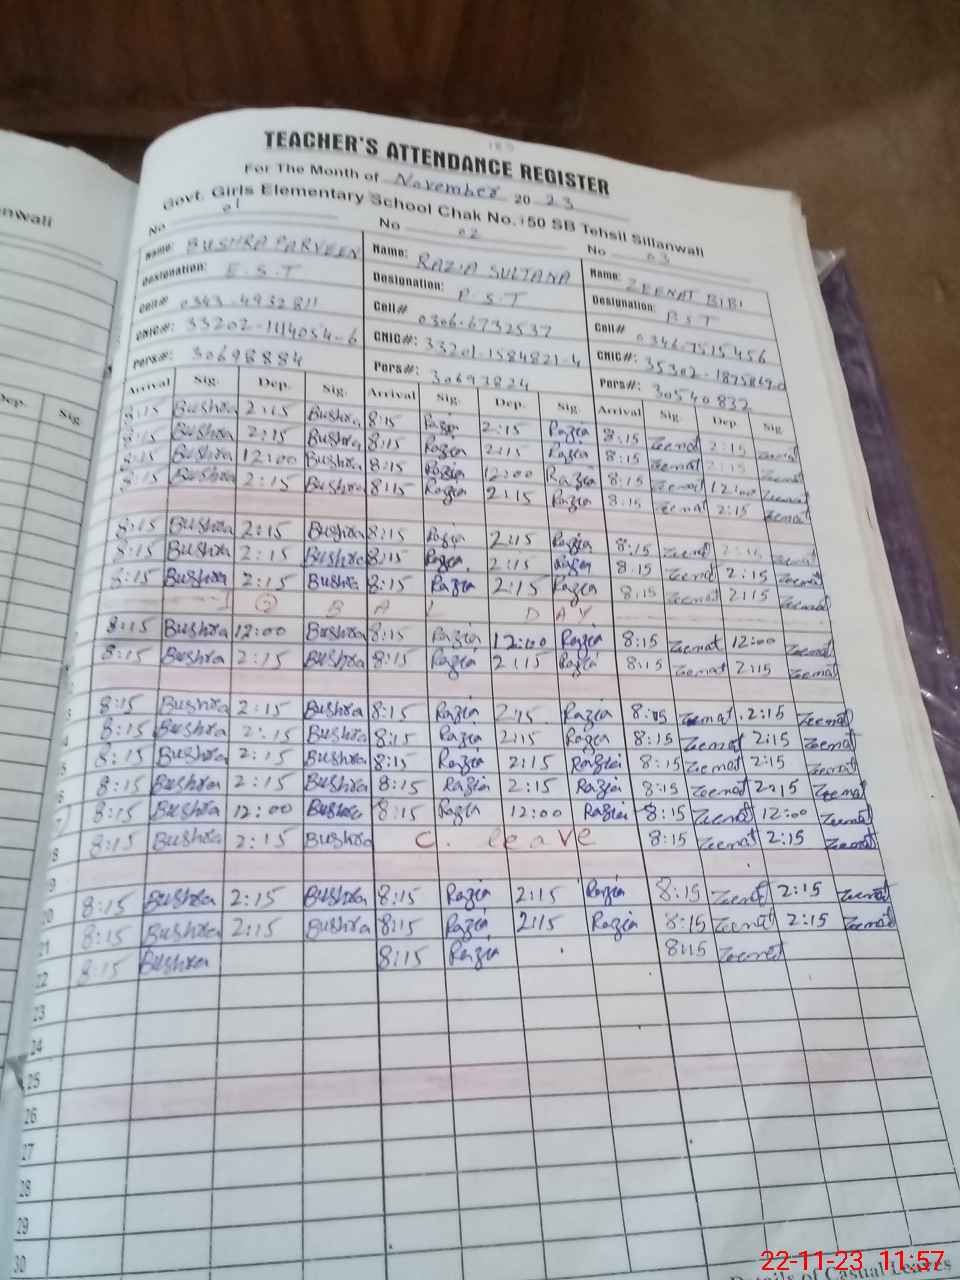 TEACHER'S ATTENDANCE REGISTER
For The Month of November 20 23
Govt. Girls Elementary School Chak No. 150 SB Tehsil Sillanwali
nwali
No 01 No 02 No 03
Name: BUSHRA PARVEEN Name: RAZIA SULTANA Name: ZEENAT BIBI
Designation: E.S.T Designation: P S T Designation: P.S T
Cell# 0343-4932811 Cell# 0306-6732537 Cell# 0346-7515456
CNIC#: 33202-1114054-6 CNIC#: 33201-1584821-4 CNIC#:
Pers#: 30698884 Pers#: 30693824 Pers#: 30540832
Dep. Sig. Arrival Sig. Dep. Sig. Arrival Sig. Dep. Sig. Arrival Sig. Dep. Sig
8:15 Bushra 2:15 Bushra 8:15 Razia 2:15 Razia 8:15 Zeenat 2:15 Zeenat
8:15 Bushra 2:15 Bushra 8:15 Razia 2:15 Razia 8:15 Zeenat 2:15 Zeenat
8:15 Bushra 12:00 Bushra 8:15 Razia 12:00 Razia 8:15 Zeenat 12:00 Zeenat
8:15 Bushra 2:15 Bushra 8:15 Razia 2:15 Razia 8:15 Zeenat 2:15 Zeenat
8:15 Bushra 2:15 Bushra 8:15 Razia 2:15 Razia 8:15 Zeenat 2:15 Zeenat
8:15 Bushra 2:15 Bushra 8:15 Razia 2:15 Razia 8:15 Zeenat 2:15 Zeenat
8:15 Bushra 2:15 Bushra 8:15 Razia 2:15 Razia 8:15 Zeenat 2:15 Zeenat
I Q B A L D A Y
8:15 Bushra 12:00 Bushra 8:15 Razia 12:00 Razia 8:15 Zeenat 12:00 Zeenat
8:15 Bushra 2:15 Bushra 8:15 Razia 2:15 Razia 8:15 Zeenat 2:15 Zeenat
8:15 Bushra 2:15 Bushra 8:15 Razia 2:15 Razia 8:15 Zeenat 2:15 Zeenat
8:15 Bushra 2:15 Bushra 8:15 Razia 2:15 Razia 8:15 Zeenat 2:15 Zeenat
8:15 Bushra 2:15 Bushra 8:15 Razia 2:15 Razia 8:15 Zeenat 2:15 Zeenat
8:15 Bushra 2:15 Bushra 8:15 Razia 2:15 Razia 8:15 Zeenat 2:15 Zeenat
8:15 Bushra 12:00 Bushra 8:15 Razia 12:00 Razia 8:15 Zeenat 12:00 Zeenat
8:15 Bushra 2:15 Bushra C. leave 8:15 Zeenat 2:15 Zeenat
20 8:15 Bushra 2:15 Bushra 8:15 Razia 2:15 Razia 8:15 Zeenat 2:15 Zeenat
21 8:15 Bushra 2:15 Bushra 8:15 Razia 2:15 Razia 8:15 Zeenat 2:15 Zeenat
22 8:15 Bushra 8:15 Razia 8:15 Zeenat
23
24
25
26
27
28
29
30
Details of Casual Leaves
22-11-23 11:57